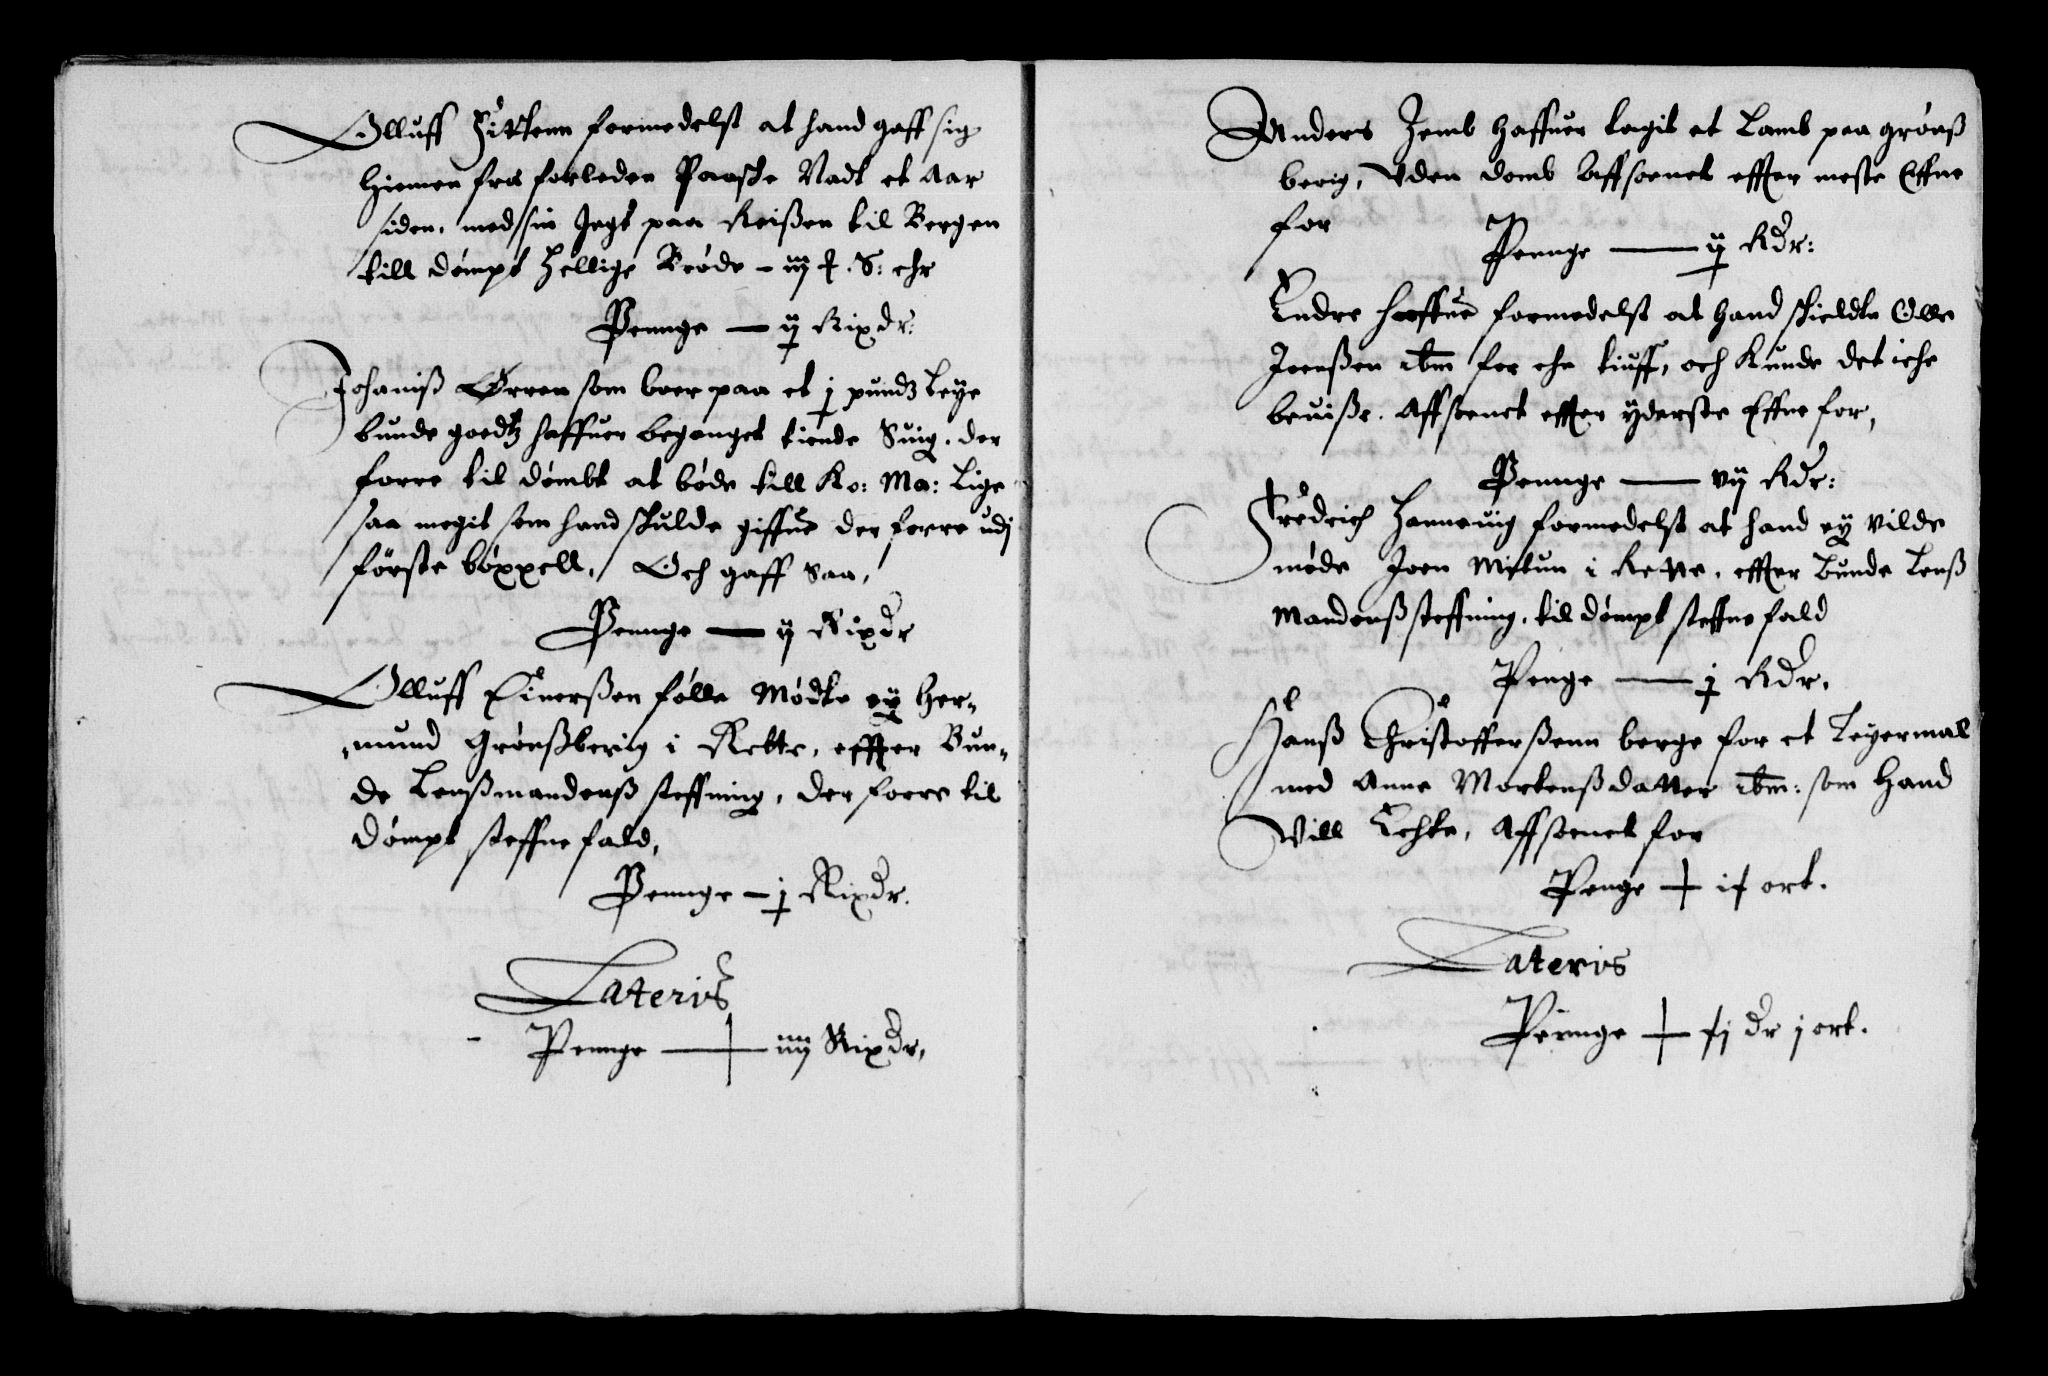 Olluff Hitkenn formedelst at hand gaff sig
hiemen fra forleden Paaske Nadt et Aar
siden, med sin Jegt paa Reißen til Bergen
till dømpt Hellige Brøde - iij ƒ. S: ehr
Pennge — ij Rixdr:
Johaniß Ørren som boer paa et j pundz Leye
bunde goedtz haffuer beganget tiende Suig, der
forre til dømbt at bøde till Ko: Ma: Lige
saa megit som hand skulde giffue der forre udj
første bøxxell, Och gaff saa,
Pennge — ij Rixdr
Olluff Einerßen følle Mødte ey Her-
mund Grønßberig i Rette, effter Bun-
de Lenßmandenß steffning, der forre til
dømpt steffne fald,
Pennge — j Rixdr.
Lateris
Pennge — iiij Rixdr,
Anders Jemb haffuer tagit et Lamb paa grønß
berig, Uden domb Affsonet effter meste Effne
for
Pennge — ij Rdr:
Endre formedelst at hand skieldte Olle
Joenßen ibm for ehn tiuff, och Kunde det iche
beuiße. Affsonet effter yderste Effne for,
Pennge — vij Rdr:
Fredrich Hanneuig formedelst at hand ey vilde
møde Joen Mitun i Rette, effter Bunde Lenß
Mandenß steffning, til dømpt steffne fald
Penge — j Rdr,
Hanß Christofferßenn berge for et Leyermal
med Anne Mortenßdatter ibm: som hand
Will Echte, Affsonet for
Penge — ort.
Lateris
Pennge — dr j ort.